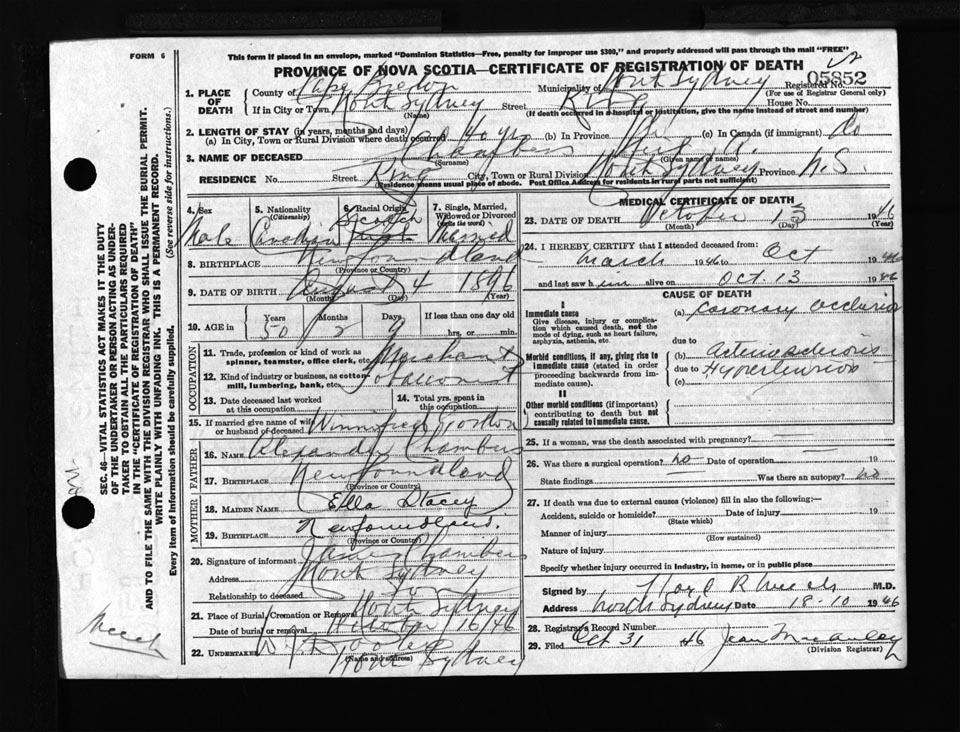 FORM 6
This form if placed in an envelope, marked "Dominion Statistics—Free, penalty for improper use $300," and properly addressed will pass through the mail "FREE"
PROVINCE OF NOVA SCOTIA—CERTIFICATE OF REGISTRATION OF DEATH
05852
1. PLACE OF DEATH
County of Cape Breton Municipality of North Sydney Registered No.
(For use of Registrar General only)
If in City or Town North Sydney Street King House No.
(Name) (If death occurred in a hospital or institution, give the name instead of street and number)
2. LENGTH OF STAY (in years, months and days)
(a) In City, Town or Rural Division where death occurred 40 yrs (b) In Province (c) In Canada (if immigrant)
3. NAME OF DECEASED Chambers
(Surname) (Given name or names)
RESIDENCE No. Street King City, Town or Rural Division North Sydney Province N.S
(Residence means usual place of abode. Post Office Address for residents in rural parts not sufficient)
4. Sex Male
5. Nationality (Citizenship) Canadian
6. Racial Origin Scotch
7. Single, Married, Widowed or Divorced (write the word) Married
8. BIRTHPLACE Newfoundland
(Province or Country)
9. DATE OF BIRTH August 4 1896
(Month) (Day)
10. AGE in Years Months Days If less than one day old
50 2 9 hrs. or min.
OCCUPATION
11. Trade, profession or kind of work as spinner, teamster, office clerk, etc. Merchant
12. Kind of industry or business, as cotton mill, lumbering, bank, etc. Tobacconist
13. Date deceased last worked at this occupation
14. Total yrs. spent in this occupation
15. If married give name of wife or husband of deceased Winnifred
FATHER
16. NAME Alexander Chambers
17. BIRTHPLACE Newfoundland
(Province or Country)
MOTHER
18. MAIDEN NAME Ella Stacey
19. BIRTHPLACE Newfoundland.
(Province or Country)
20. Signature of informant James Chambers
Address North Sydney
Relationship to deceased Son
21. Place of Burial, Cremation or Removal North Sydney
Date of burial or removal October 16/46
22. UNDERTAKER
(Name and address) North Sydney
MEDICAL CERTIFICATE OF DEATH
23. DATE OF DEATH October 13 1946
(Month) (Day) (Year)
24. I HEREBY CERTIFY that I attended deceased from:
March 1946 to Oct 1946
and last saw him alive on Oct. 13 1946
CAUSE OF DEATH
I
Immediate cause
Give disease, injury or complication which caused death, not the mode of dying, such as heart failure, asphyxia, asthenia, etc.
(a) Coronary Occlusion
due to
Morbid conditions, if any, giving rise to immediate cause (stated in order proceeding backwards from immediate cause).
(b) Arteriosclerosis
due to Hypertension
(c)
II
Other morbid conditions (if important) contributing to death but not causally related to immediate cause.
25. If a woman, was the death associated with pregnancy?
26. Was there a surgical operation? no Date of operation 19
State findings Was there an autopsy? no
27. If death was due to external causes (violence) fill in also the following:—
Accident, suicide or homicide? Date of injury 19
(State which)
Manner of injury
(How sustained)
Nature of injury
Specify whether injury occurred in industry, in home, or in public place
Signed by M.D.
Address North Sydney Date 18-10 1946
28. Registrar's Record Number
29. Filed Oct 31 46 Jean
(Division Registrar)
SEC. 46—VITAL STATISTICS ACT MAKES IT THE DUTY
OF THE UNDERTAKER OR PERSON ACTING AS UNDER-
TAKER TO OBTAIN ALL THE PARTICULARS REQUIRED
IN THE "CERTIFICATE OF REGISTRATION OF DEATH"
AND TO FILE THE SAME WITH THE DIVISION REGISTRAR WHO SHALL ISSUE THE BURIAL PERMIT.
WRITE PLAINLY WITH UNFADING INK. THIS IS A PERMANENT RECORD.
Every item of Information should be carefully supplied. (See reverse side for instructions.)